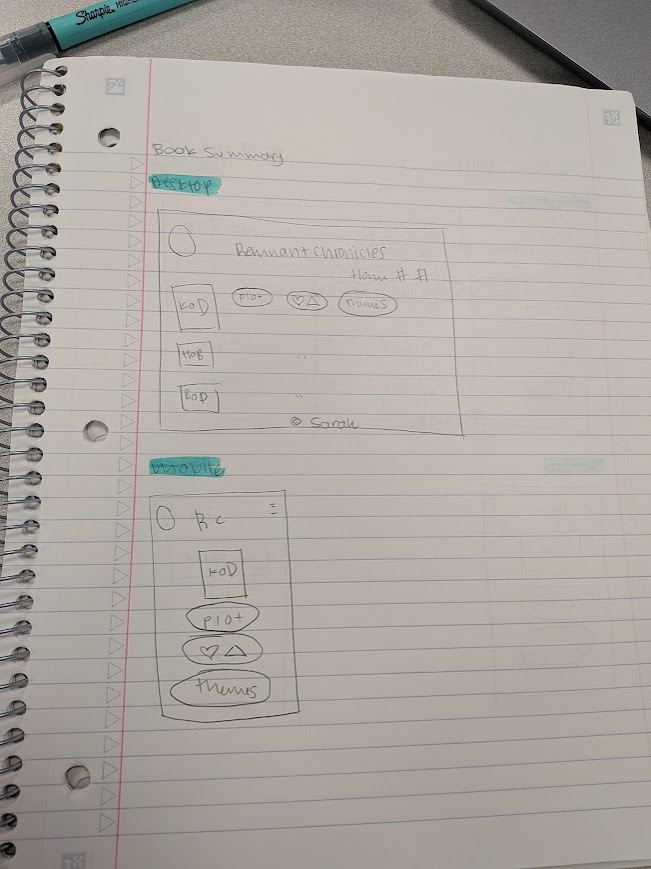 Sharpie
Book Summary
Desktop
Remnant chronicles
Home # #
KOD plot ♡△ themes
HOB "
BOD "
© Sarah
Mobile
RC ≡
KOD
plot
♡△
themes